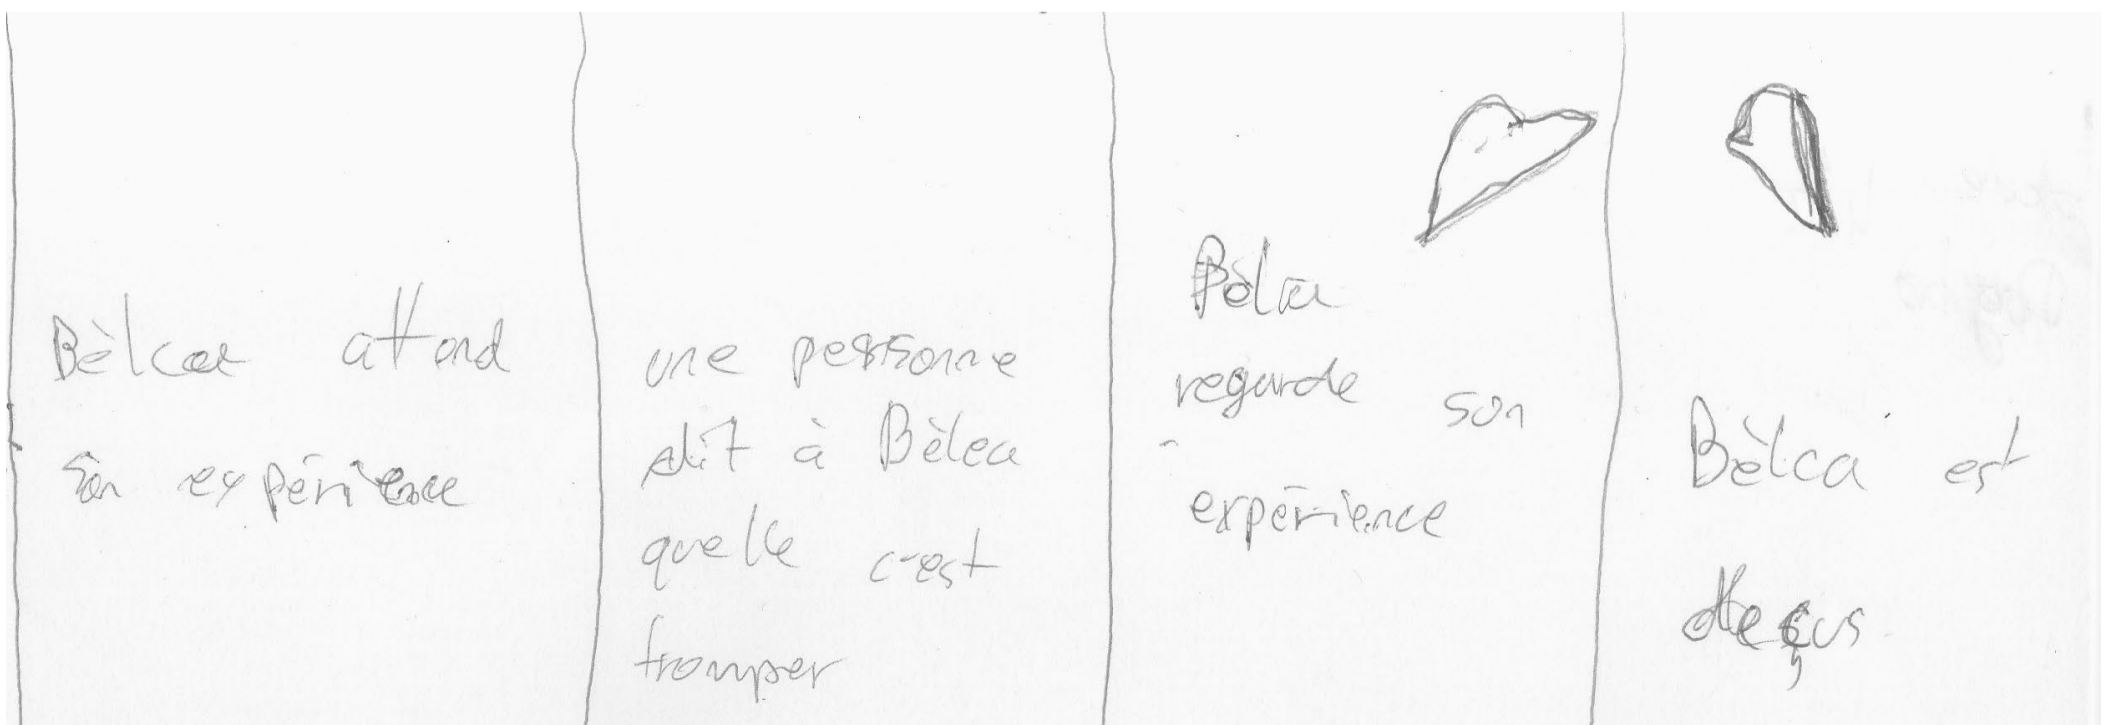 Bèlca attend
son expérience
une personne
dit à Bèlca
quelle c'est
tromper
Bèlca
regarde son
expérience
Bèlca est
deçus